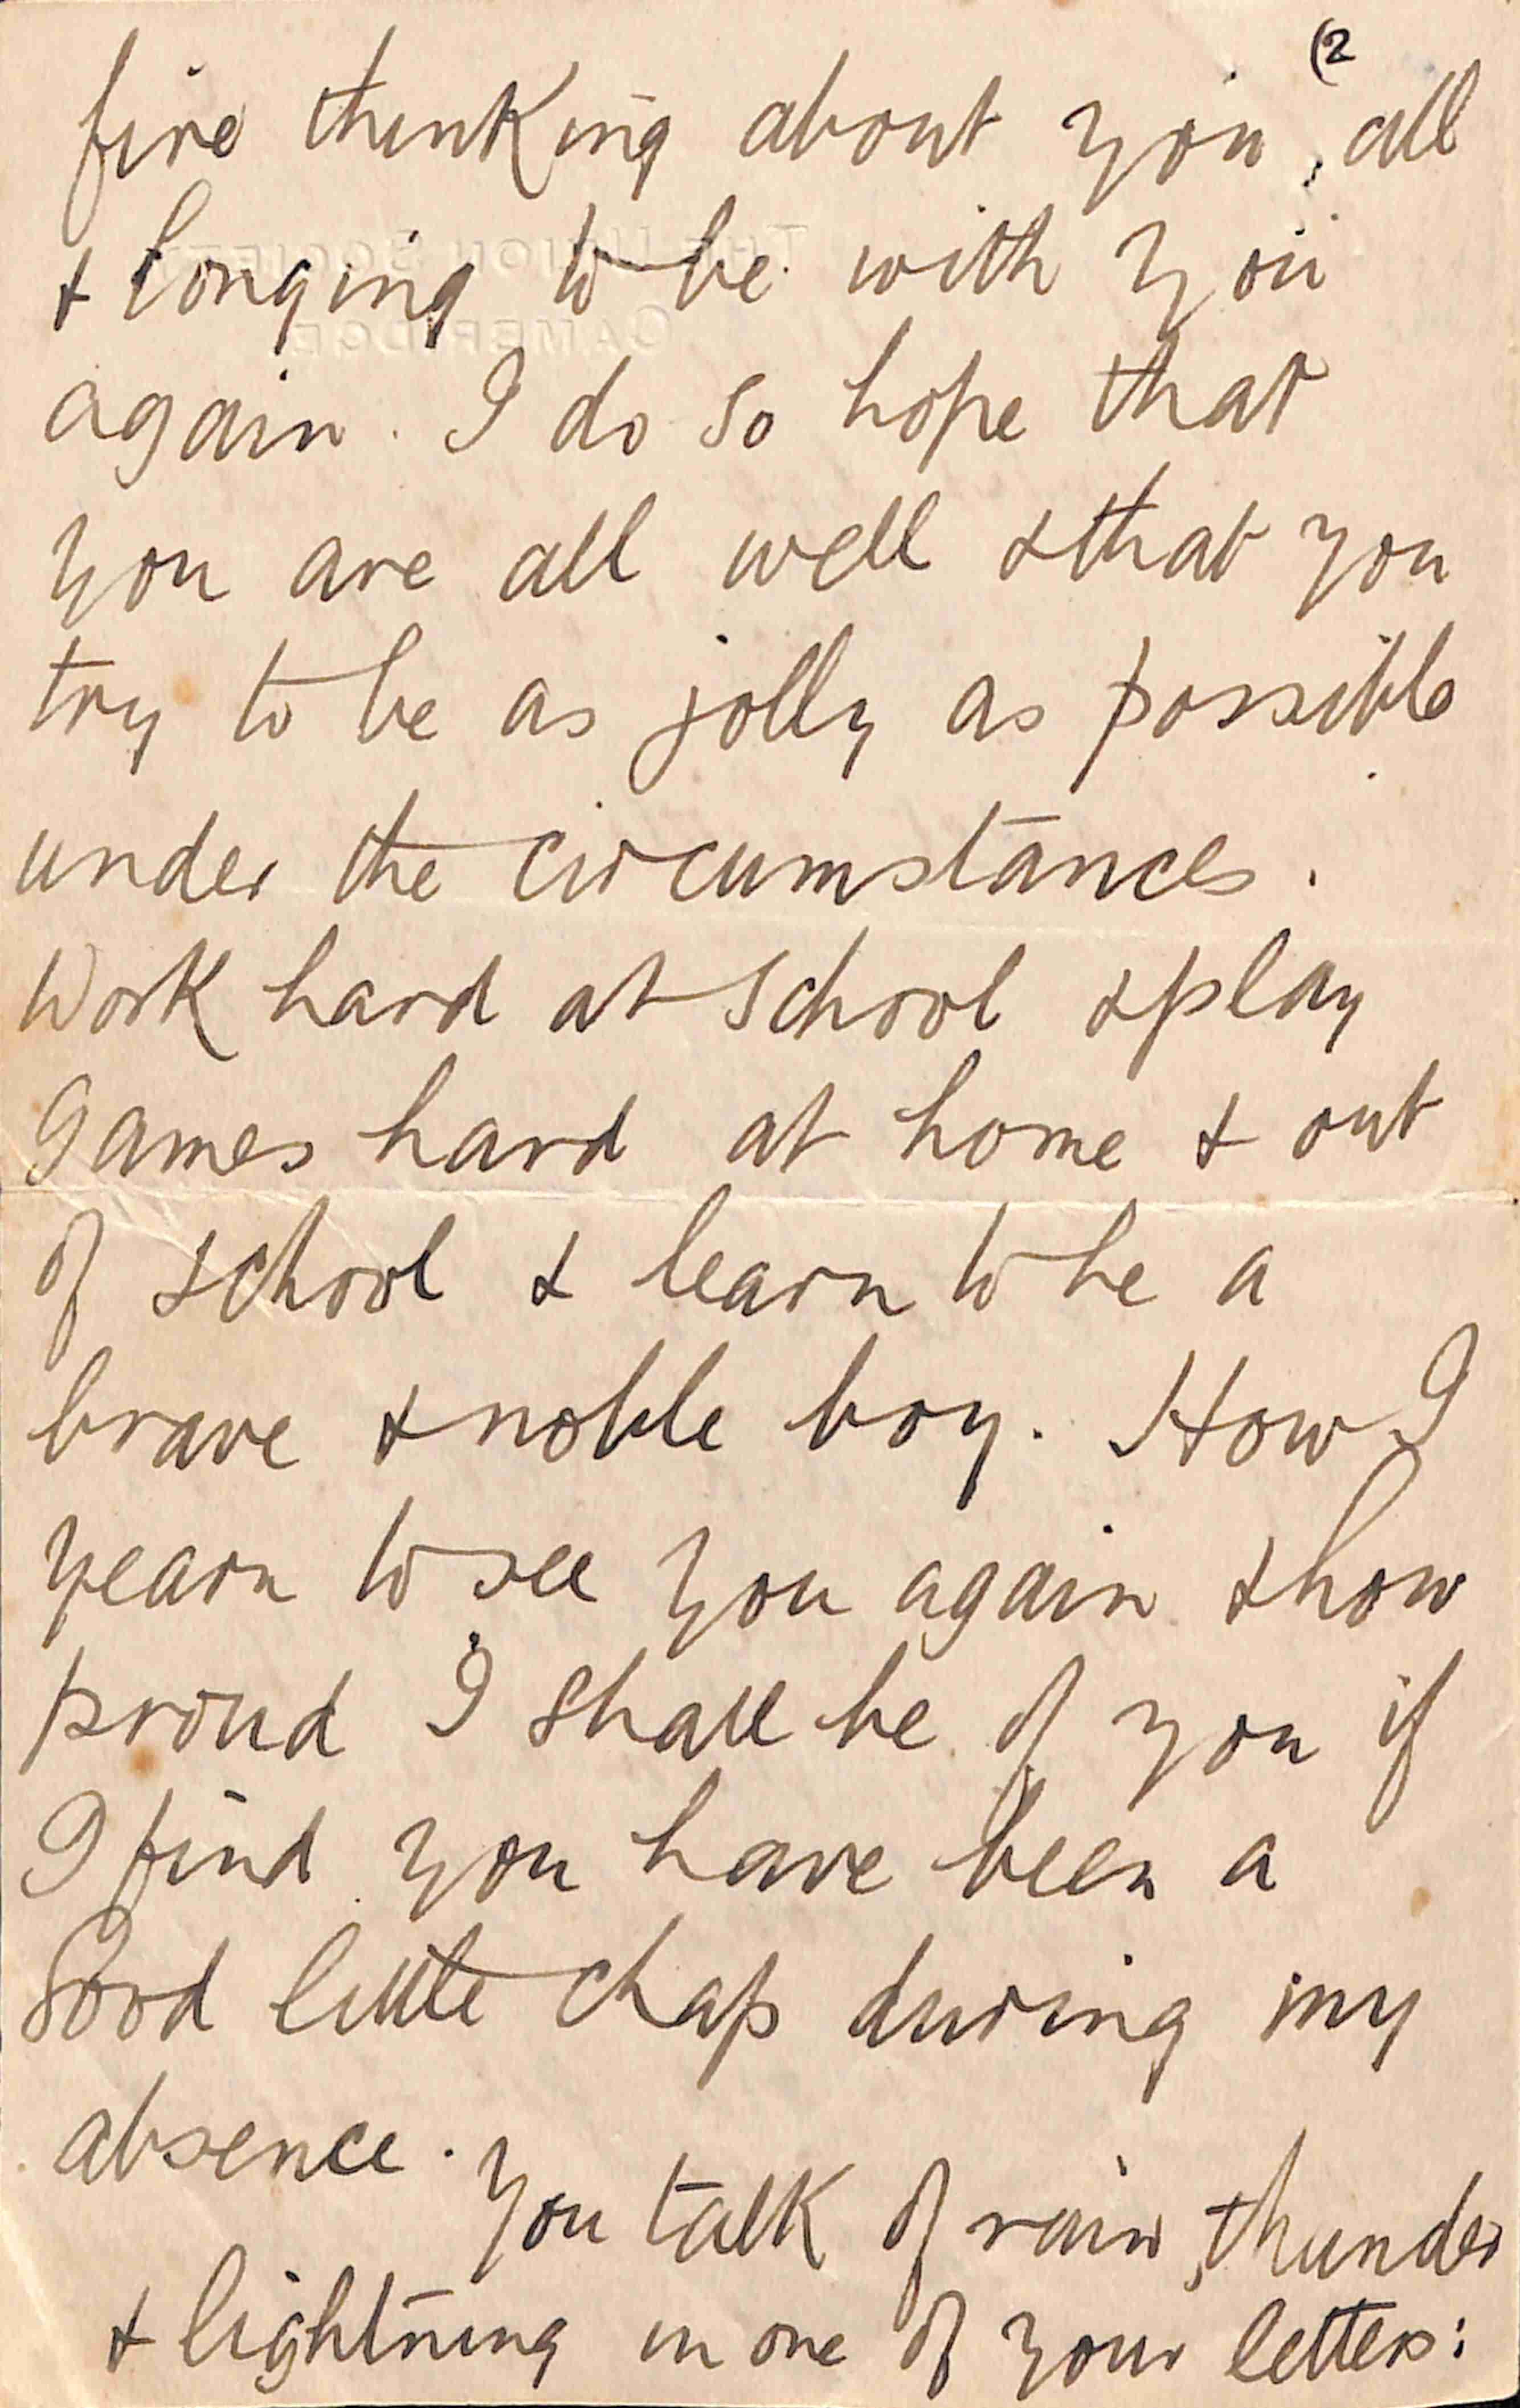 (2
fire thinking about you, all
& longing to be with you
THE UNION SOCIETY
CAMBRIDGE
again. I do so hope that
you are all well & that you
try to be as jolly as possible
under the circumstances.
Work hard at school & play
games hard at home & out
of school & learn to be a
brave & noble boy. How I
yearn to see you again & how
proud I shall be of you if
I find you have been a
good little chap during my
absence. You talk of rain, thunder
& lightning in one of your letters: